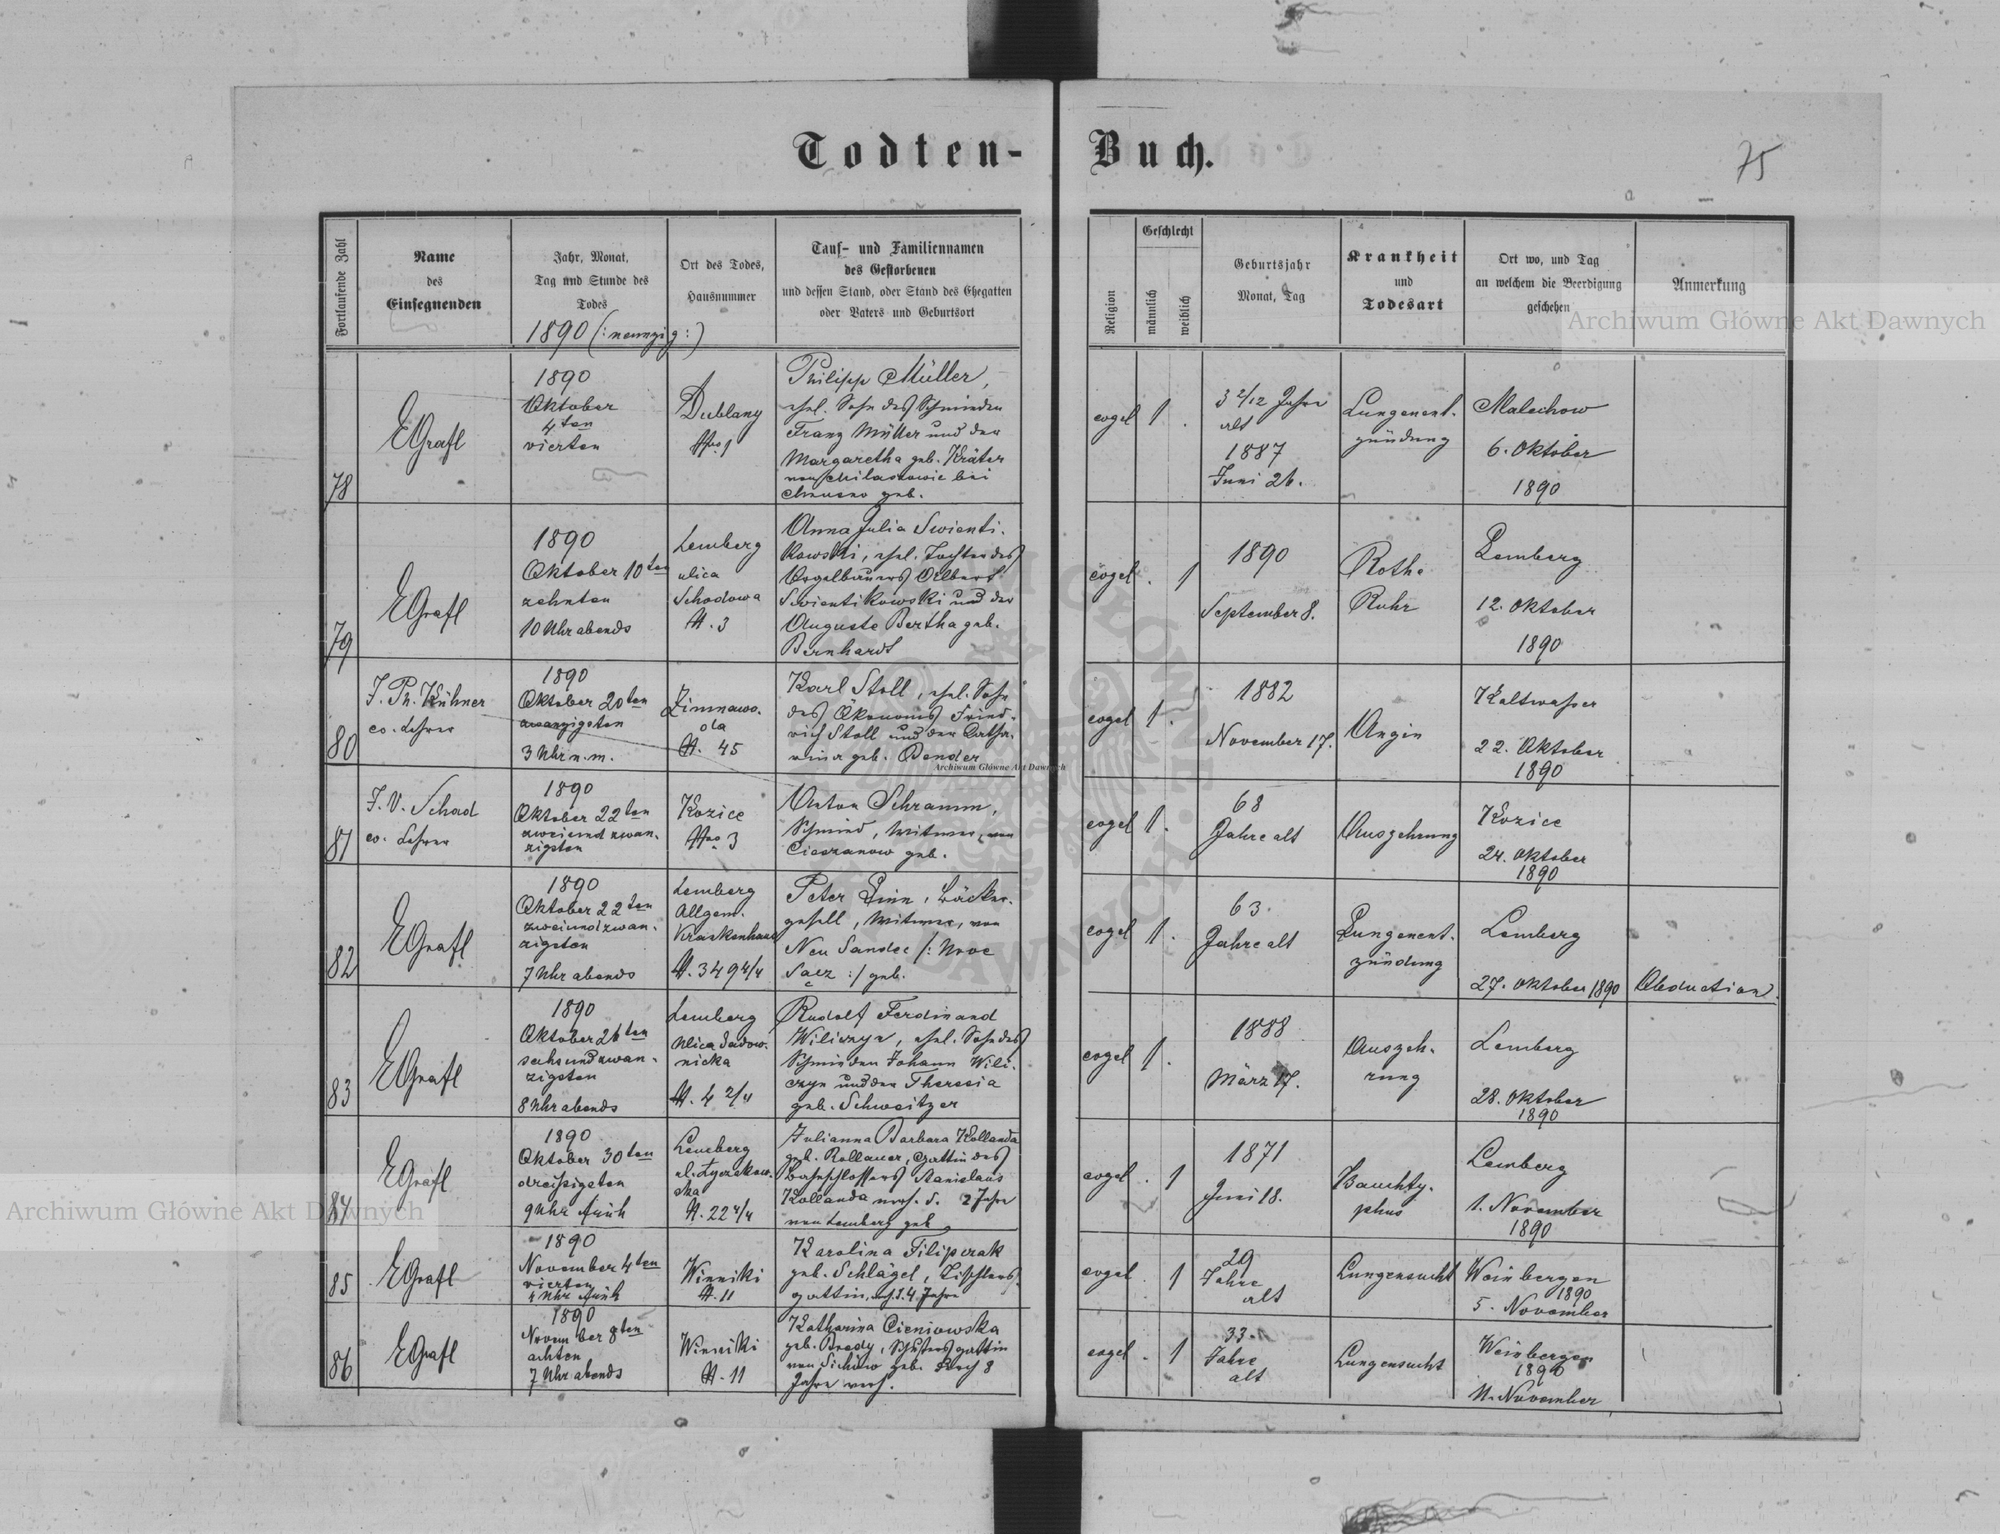 Todten-Buch.
75
Fortlaufende Zahl
Name
des
Einsegnenden
Jahr, Monat,
Tag und Stunde des
Todes
1890 (: neunzig :)
Ort des Todes,
Hausnummer
Tauf- und Familiennamen
des Gestorbenen
und dessen Stand, oder Stand des Ehegatten
oder Vaters und Geburtsort
Religion
Geschlecht
männlich
weiblich
Geburtsjahr
Monat, Tag
Krankheit
und
Todesart
Ort wo, und Tag
an welchem die Beerdigung
geschehen
Anmerkung
Archiwum Główne Akt Dawnych
78
EGrafl
1890
Oktober
4ten
vierten
Dublany
Nro. 1
Philipp Müller,
ehel. Sohn des Schmieden
Franz Müller und der
Margaretha geb. Kräter
von bei
geb.
evgel
1
.
3 2/12 Jahre
alt
1887
Juni 26.
Lungenent-
zündung
Malechow
6. Oktober
1890
79
EGrafl
1890
Oktober 10ten
zehnten
10 Uhr abends
Lemberg
ulica
Schodowa
N. 3
Anna Julia Swienti-
kowski, ehel. Tochter des
Orgelbauers Albert
Swientikowski und der
Auguste Bertha geb.
Bernhardt
evgel
.
1
1890
September 8.
Rothe
Ruhr
Lemberg
12. Oktober
1890
80
J. Ph. Kühner
ev. Lehrer
1890
Oktober 20ten
zwanzigsten
3 Uhr n. m.
Zimnawo-
da
N. 45
Karl Stoll, ehel. Sohn
des Ökonomis Fried-
rich Stoll und der Catha-
rina geb. Bender
Archiwum Główne Akt Dawnych
evgel
1
.
1882
November 17.
Angin
Kaltwasser
22. Oktober
1890
81
J. V. Schad
ev. Lehrer
1890
Oktober 22ten
zweiundzwan-
zigsten
Kozice
Nro 3
Anton Schramm,
Schmied, Witwer, von
Cieszanow geb.
evgel
1
.
68
Jahre alt
Auszehrung
Kozice
24. Oktober
1890
82
EGrafl
1890
Oktober 22ten
zweiundzwan-
zigsten
7 Uhr abends
Lemberg
Allgem.
Krankenhaus
N. 349 4/4
Peter Zinn, Bäcker-
gesell, Witwer, von
Neu Sandec /: Nove
Sącz :/ geb.
evgel
1
.
63
Jahre alt
Lungenent-
zündung
Lemberg
27. Oktober 1890
Obduction
83
EGrafl
1890
Oktober 26ten
sechsundzwan-
zigsten
8 Uhr abends
Lemberg
Ulica Sadow-
nicka
N. 4 2/4
Rudolf Ferdinand
Wiliczyn, ehel. Sohn des
Schmieden Johann Wili-
czyn und der Theresia
geb. Schweitzer
evgel
1
.
1888
März 17.
Auszeh-
rung
Lemberg
28. Oktober
1890
84
EGrafl
1890
Oktober 30ten
dreißigsten
9 Uhr früh
Lemberg
ul. Łyczakow-
ska
N. 22 4/4
Julianna Barbara Kollanda
geb. Rollauer, Gattin des
Bahnschlossers Stanislaus
Kollanda verh. s. 2 Jahre
von Lemberg geb.
evgel
.
1
1871
Juni 18.
Bauchty-
phus
Lemberg
1. November
1890
85
EGrafl
1890
November 4ten
vierten
4 Uhr früh
Winniki
N. 11
Karolina Filipczak
geb. Schlägel, Tischlers-
gattin, verh. s. 4 Jahre
evgel
.
1
29
Jahre
alt
Lungensucht
Weinbergen
1890
5. November
86
EGrafl
1890
November 8ten
achten
7 Uhr abends
Winniki
N. 11
Katharina Cieniowska
geb. Bredy, Schustersgattin
von Sichow geb. 8
Jahre verh.
evgel
.
1
33
Jahre
alt
Lungensucht
Weinbergen
1890
11. November
Archiwum Główne Akt Dawnych